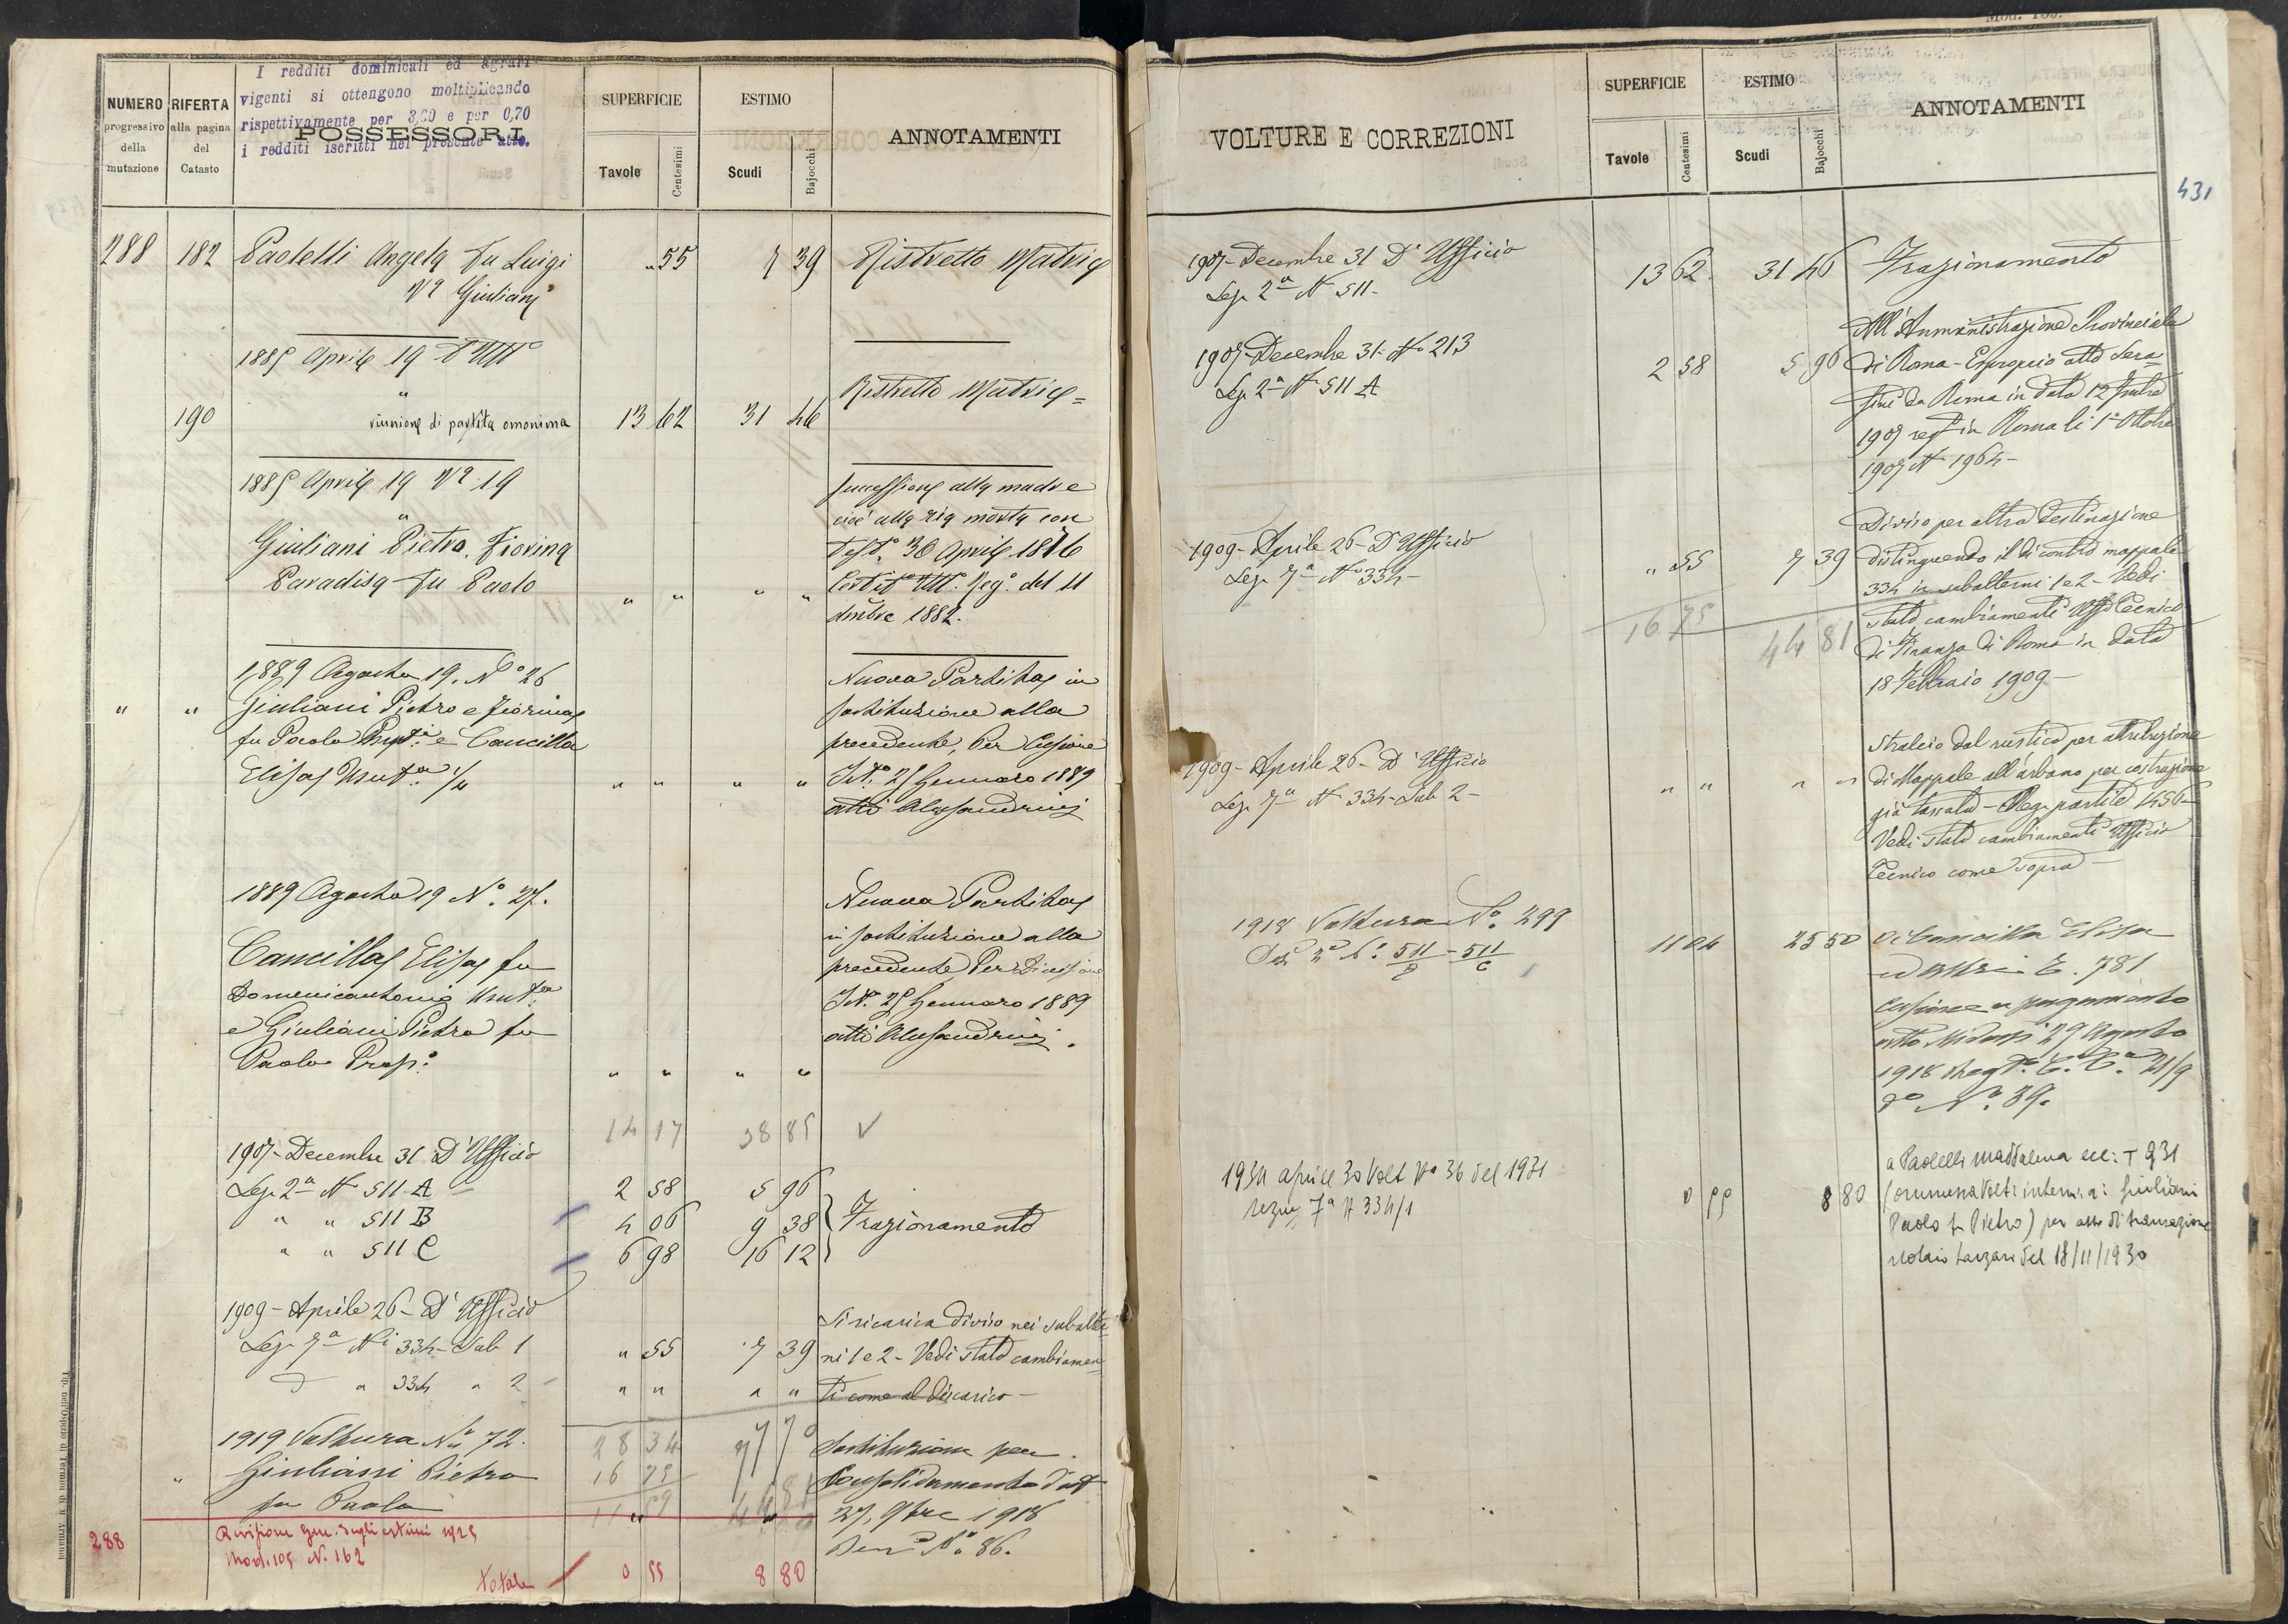 I redditi dominicali ed agrari
vigenti si ottengono moltiplicando
rispettivamente per 3,00 e per 0,70
i redditi iscritti nel presente atto.
NUMERO progressivo della mutazione
RIFERTA alla pagina del Catasto
POSSESSORI
SUPERFICIE
Tavole
Centesimi
ESTIMO
Scudi
Bajocchi
ANNOTAMENTI
288 182 Paolelli Angela fu Luigi " 55 7 39 Ristretto Matrice
Va Giuliani
1885 Aprile 19 d'Uff°
"
Ristretto Matrice =
190 riunione di partita omonima 13 62 31 46
1885 Aprile 19 N° 19
"
Giuliani Pietro, Fiorina
Paradisa fu Paolo " " " "
Successione alla madre
cioè alla zia morta con
Test° 30 Aprile 1876
del 11
dmbre 1882.
1889 Agosto 19. N° 26
" " Giuliani Pietro e Fiorina
fu Paolo e Cancilla
Elisa Usuta 1/4 " " " "
Nuova Partita in
sostituzione alla
precedente, Per Cessione
25 Gennaro 1889
atti Alessandrini
1889 Agosto 19 N° 27.
Cancilla Elisa fu
Domenicantonio Usuta
e Giuliani Pietro fu
Paolo Prop° " " " "
Nuova Partita
in sostituzione alla
precedente Per Divisione
25 Gennaro 1889
atti Alessandrini.
14 17 38 85 ✓
1907 - Decembre 31 D'Ufficio
Sez. 2a N 511 A 2 58 5 96
" " 511 B 4 06 9 38 Frazionamento
" " 511 C 6 98 16 12
1909 - Aprile 26 - D'Ufficio
Sez. 7a Ni 334 - Sub 1 " 55 7 39
" 334 " 2 " " " "
Si ricarica diviso nei subalter-
ni 1 e 2 - Vedi stato cambiamen-
ti come al discarico -
28 34 77 70
16 75 44 81
11 59
1919 Voltura N° 72.
" Giuliani Pietro
fu Paolo
Sostituzione per
Consolidamento
27, 9bre 1918
Den N° 86.
288 Revisione Gen. degli estimi 1925
Mod. 105 N. 162
Totale 0 55 8 80
Mod. 133.
431
VOLTURE E CORREZIONI
SUPERFICIE
Tavole
Centesimi
ESTIMO
Scudi
Bajocchi
ANNOTAMENTI
1907 - Decembre 31 D'Ufficio
Sez. 2a N 511 - 13 62 31 46 Frazionamento
1907 - Decembre 31 - N° 213
Sez. 2a N 511 A 2 58 5 96
All'Amministrazione Provinciale
di Roma - Esproprio atto Sera-
fini da Roma in data 12
1907 reg° in Roma li 1° Ottobre
1907 N 1964 -
1909 - Aprile 26 - D'Ufficio
Sez. 7a N° 334 - " 55 7 39
Diviso per altra destinazione
distinguendo il di contro mappale
334 in subalterni 1 e 2 - Vedi
stato cambiamenti Uff° Tecnico
di Finanza di Roma in data
18 Febbraio 1909 -
16 75 44 81
1909 - Aprile 26 - D'Ufficio
Sez. 7a N 334 - Sub 2 - " " " "
Stralcio dal rustico per attribuzione
di Mappale all'urbano per costruzione
già tassata - Reg. partita 1456 -
Vedi stato cambiamenti Ufficio
Tecnico come sopra -
1918 Voltura N° 299
Sez. 2a N° 511/B - 511/C 11 04 25 50
Di Cancilla Elisa
ed altri T. 781
Cessione a pagamento
29 Agosto
1918 21/9
N° 39.
1931 aprile 30 Volt N° 36 del 1931
sezne 7a N 334/1 0 55 8 80
a Paolelli Maddalena ecc: T 931
(ommessa Volt: intermia: Giuliani
Paolo fu Pietro) per atto di transazione
notaio Lanzari del 18/11/1930